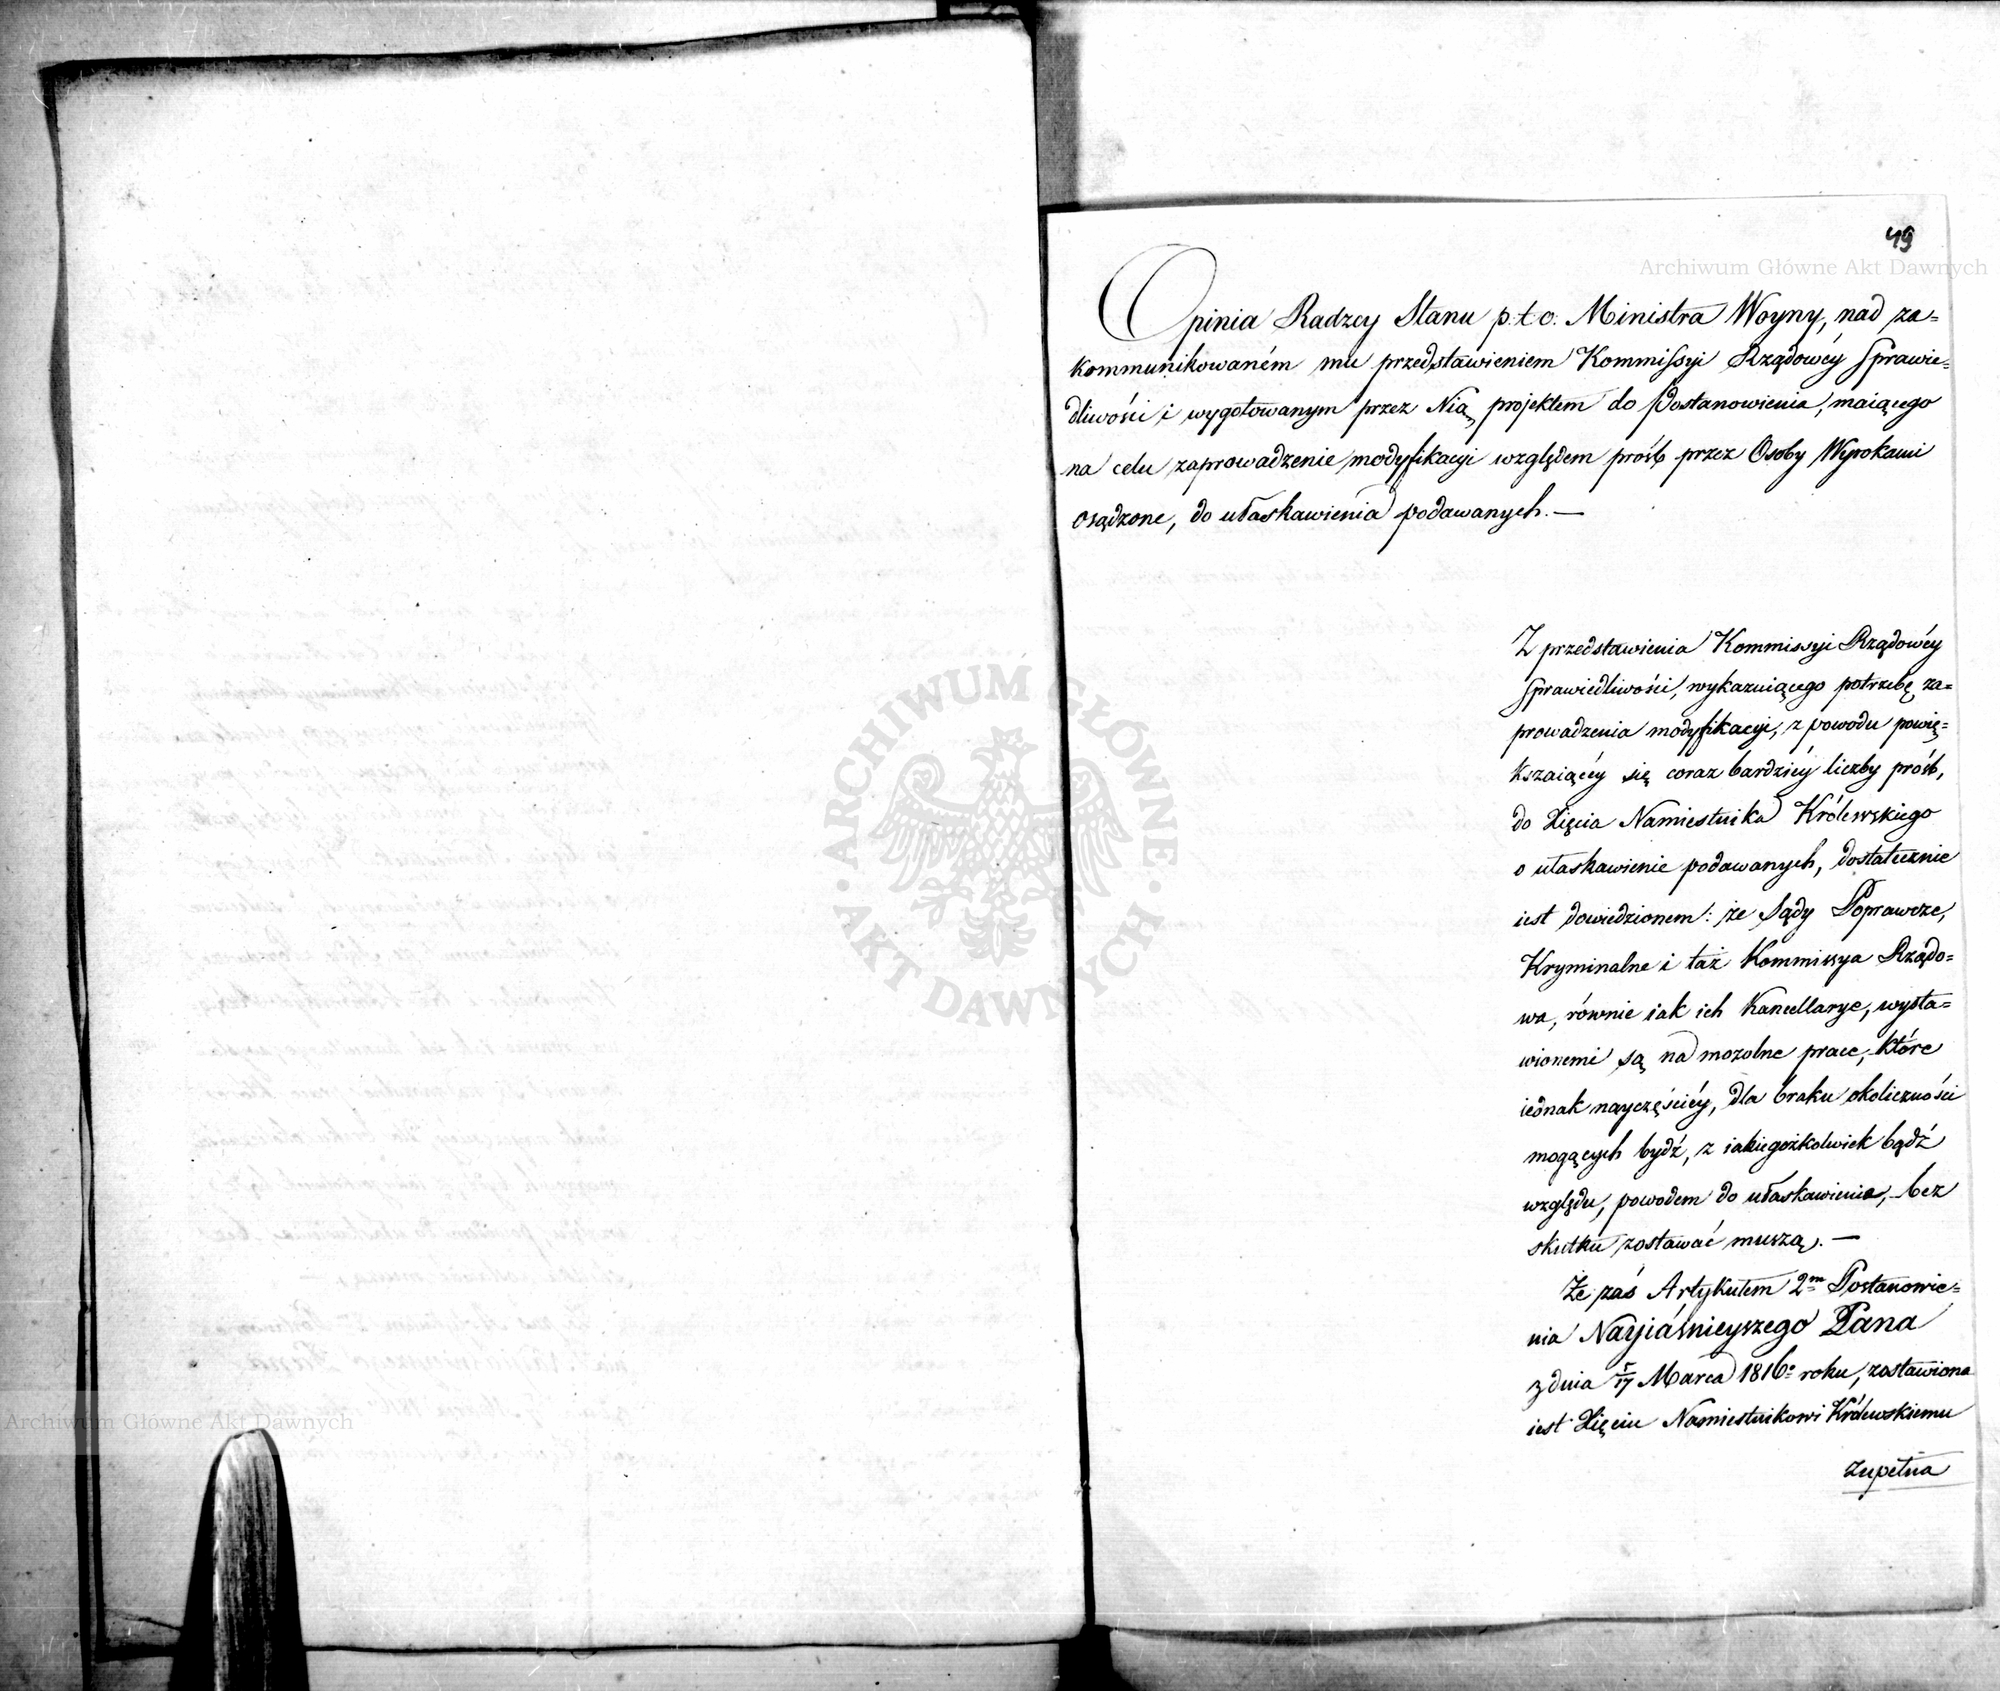 49
Archiwum Główne Akt Dawnych
Opinia Radzcy Stanu p.t.o. Ministra Woyny, nad za=
kommunikowaném mu przedstawieniem Kommissyi Rządowéy Sprawie=
dliwości i wygotowanym przez Nią projektem do Postanowienia, maiącego
na celu zaprowadzenie modyfikacyi względem próśb przez Osoby Wyrokami
osądzone, do ułaskawienia podawanych. —
Z przedstawienia Kommissyi Rządowéy
Sprawiedliwości, wykazuiącego potrzebę za=
prowadzenia modyfikacyi, z powodu powię=
kszaiącéy się coraz bardziéy liczby próśb,
do Xięcia Namiestnika Królewskiego
o ułaskawienie podawanych, dostatecznie
iest dowiedzionem: że Sądy Poprawcze,
Kryminalne i taż Kommissya Rządo=
wa, równie iak ich Kancellarye, wysta=
wionemi są na mozolne prace, które
iednak nayczęściéy, dla braku okoliczności
mogących bydź, z iakiegożkolwiek bądź
względu, powodem do ułaskawienia, bez
skutku zostawać muszą. —
Że zaś Artykułem 2m Postanowie=
nia Nayiaśnieyszego Pana
z dnia 5/17 Marca 1816o roku, zostawiona
iest Xięciu Namiestnikowi Królewskiemu
zupełna
ARCHIWUM GŁÓWNE
· AKT DAWNYCH ·
Archiwum Główne Akt Dawnych